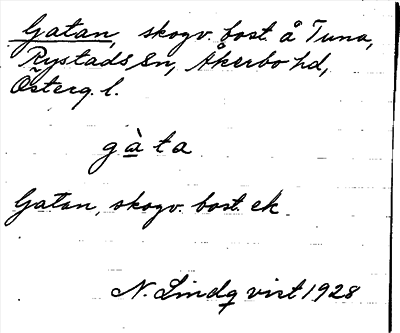 Gatan, skogv. bost. å Tuna,
Rystads sn, Åkerbo hd,
Österg. l.
gàta
Gatan, skogv. bost. ek.
N. Lindqvist 1928